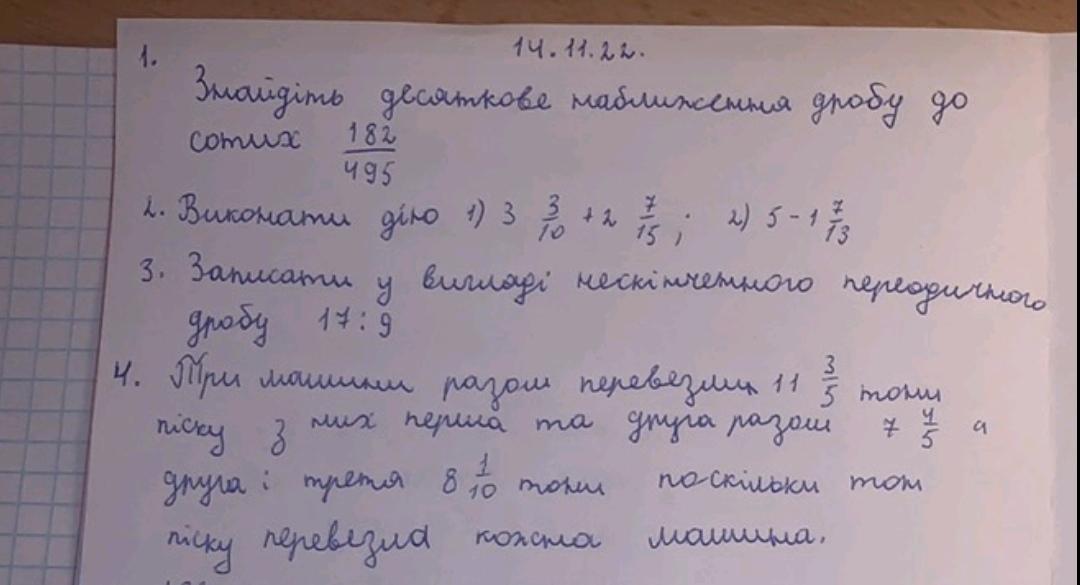 14.11.22.
1.
Знайдіть десяткове наближення дробу до
сотих 182/495
2. Виконати дію 1) 3 3/10 + 2 7/15 ; 2) 5 - 1 7/13
3. Записати у вигляді нескінченного переодичного
дробу 17 : 9
4. Три машини разом перевезли 11 3/5 тони
піску З них перша та друга разом 7 4/5 а
друга і третя 8 1/10 тони по скільки тон
піску перевезла кожна машина.